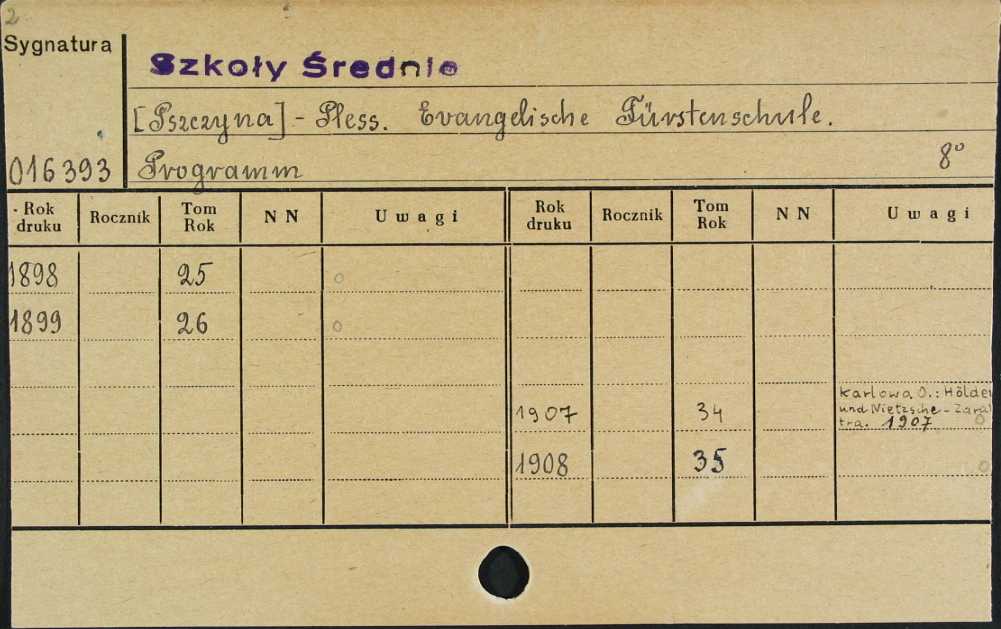 2
Sygnatura
Szkoły Średnie
[Pszczyna] - Pless. Evangelische Fürstenschule.
016393
Programm
8°
Rok druku Rocznik Tom Rok NN Uwagi Rok druku Rocznik Tom Rok NN Uwagi
1898 25 o
1899 26 o
1907 34 Karlowa, O.: Hölder
und Nietzsche - Zara
tra. 1907 o
1908 35 o